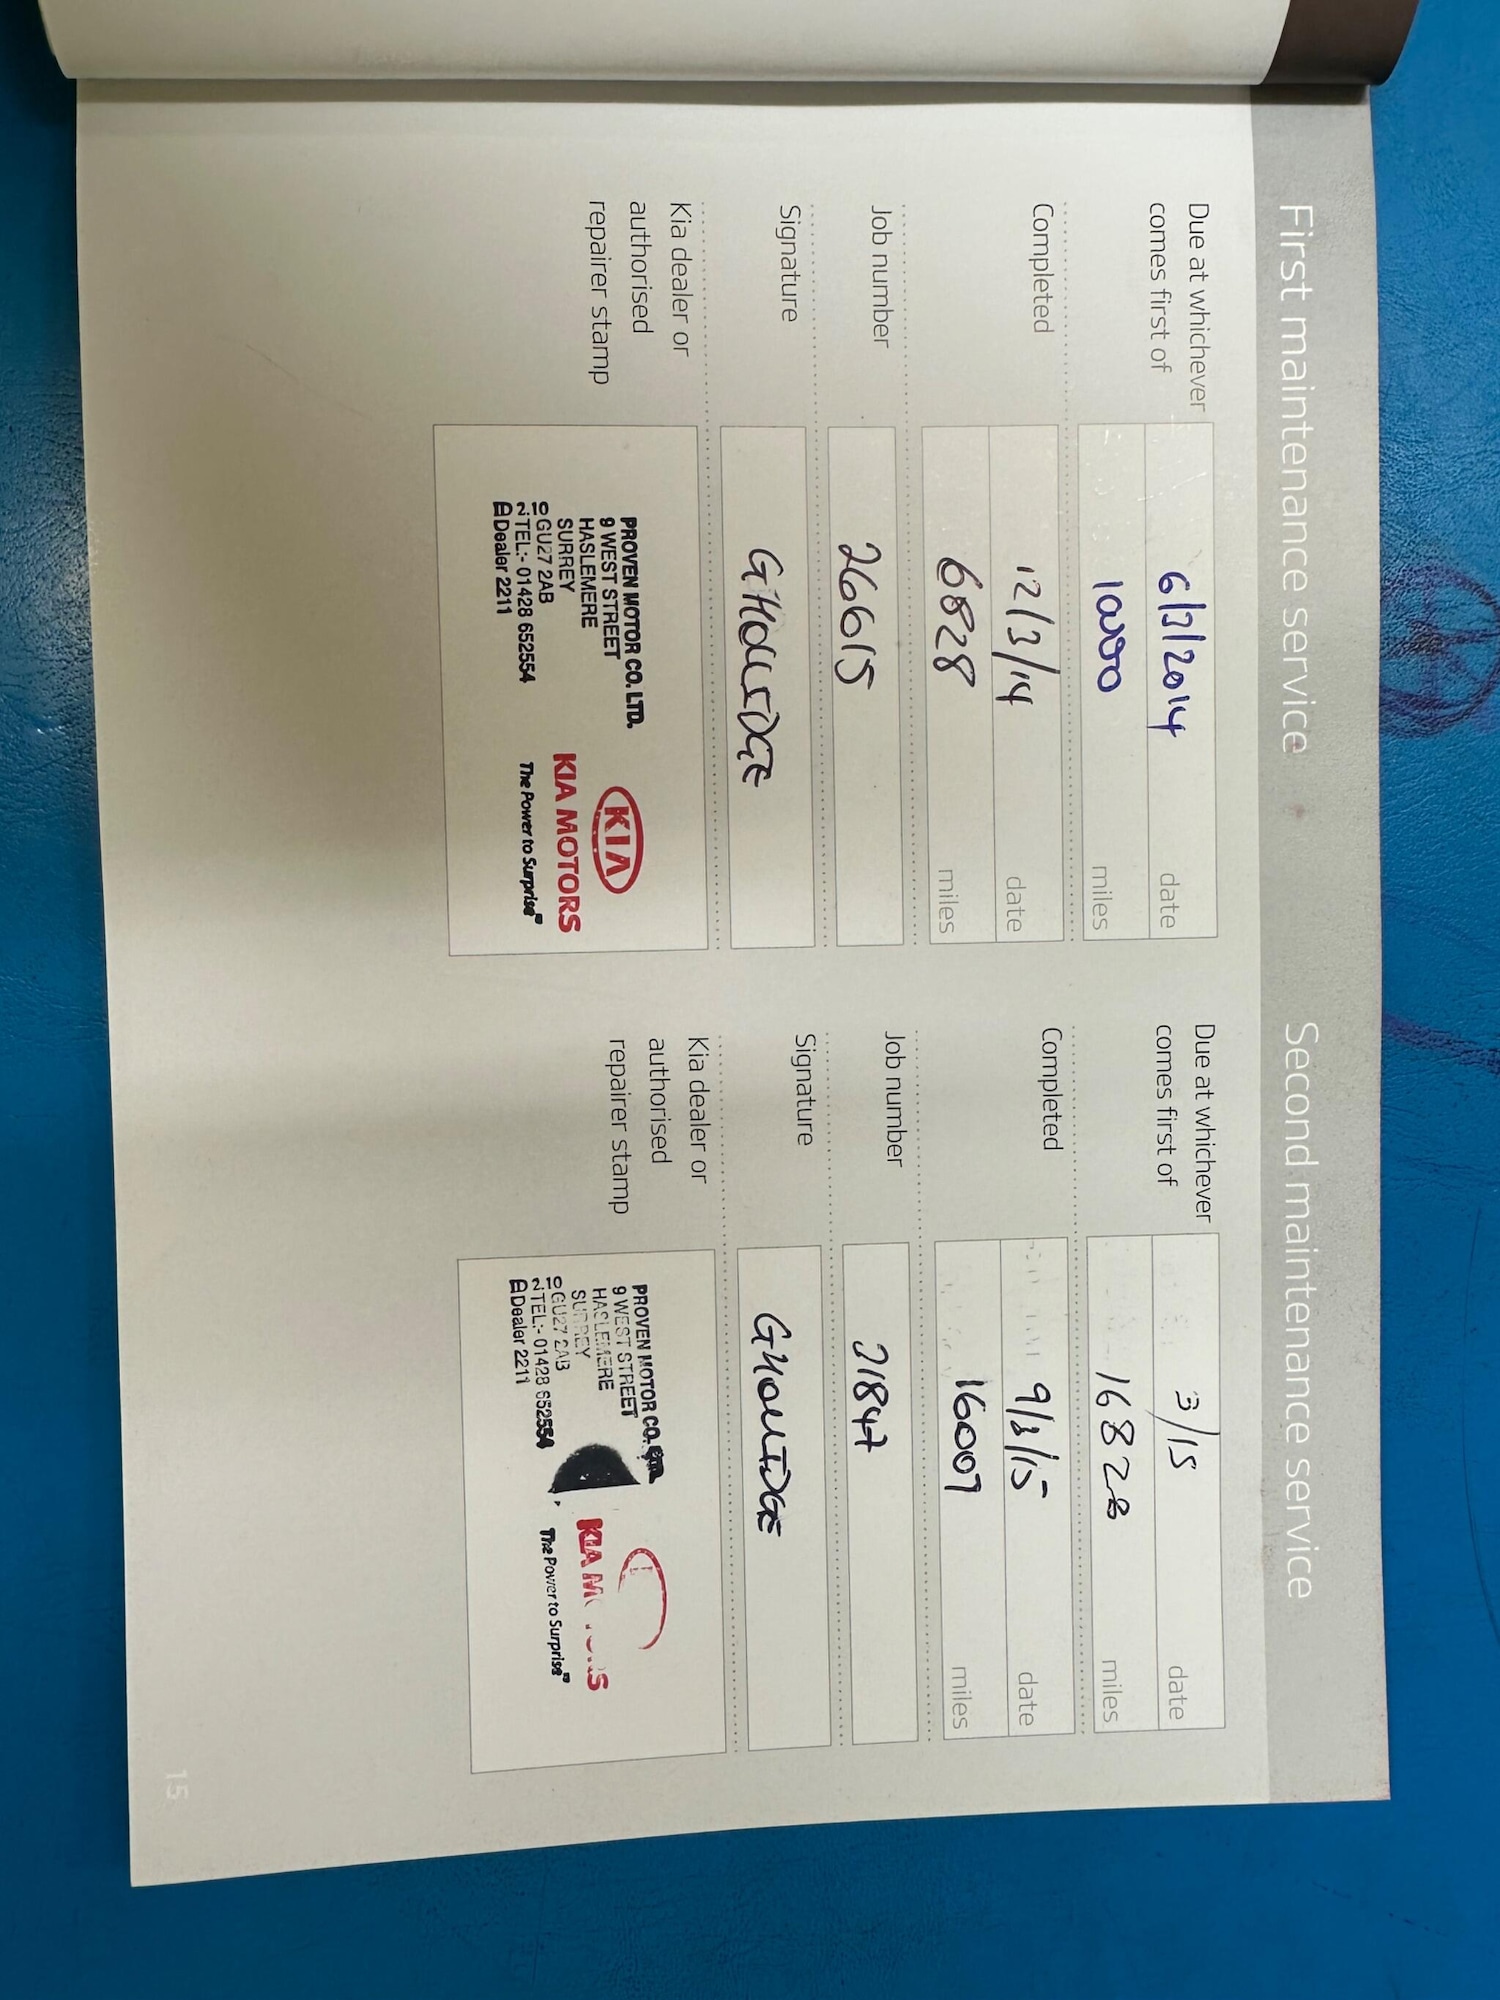 First maintenance service
Due at whichever
comes first of
6/3/2014 date
10000 miles
Completed
12/3/14 date
6828 miles
Job number
26615
Signature
Kia dealer or
authorised
repairer stamp
PROVEN MOTOR CO. LTD.
9 WEST STREET
HASLEMERE
SURREY
GU27 2AB
TEL:- 01428 652554
Dealer 2211
KIA
KIA MOTORS
The Power to Surprise™
Second maintenance service
Due at whichever
comes first of
3/15 date
16828 miles
Completed
9/3/15 date
16007 miles
Job number
21847
Signature
Kia dealer or
authorised
repairer stamp
PROVEN MOTOR CO.
9 WEST STREET
HASLEMERE
SURREY
GU27 2AB
TEL:- 01428 652554
Dealer 2211
KIA MOTORS
The Power to Surprise™
15